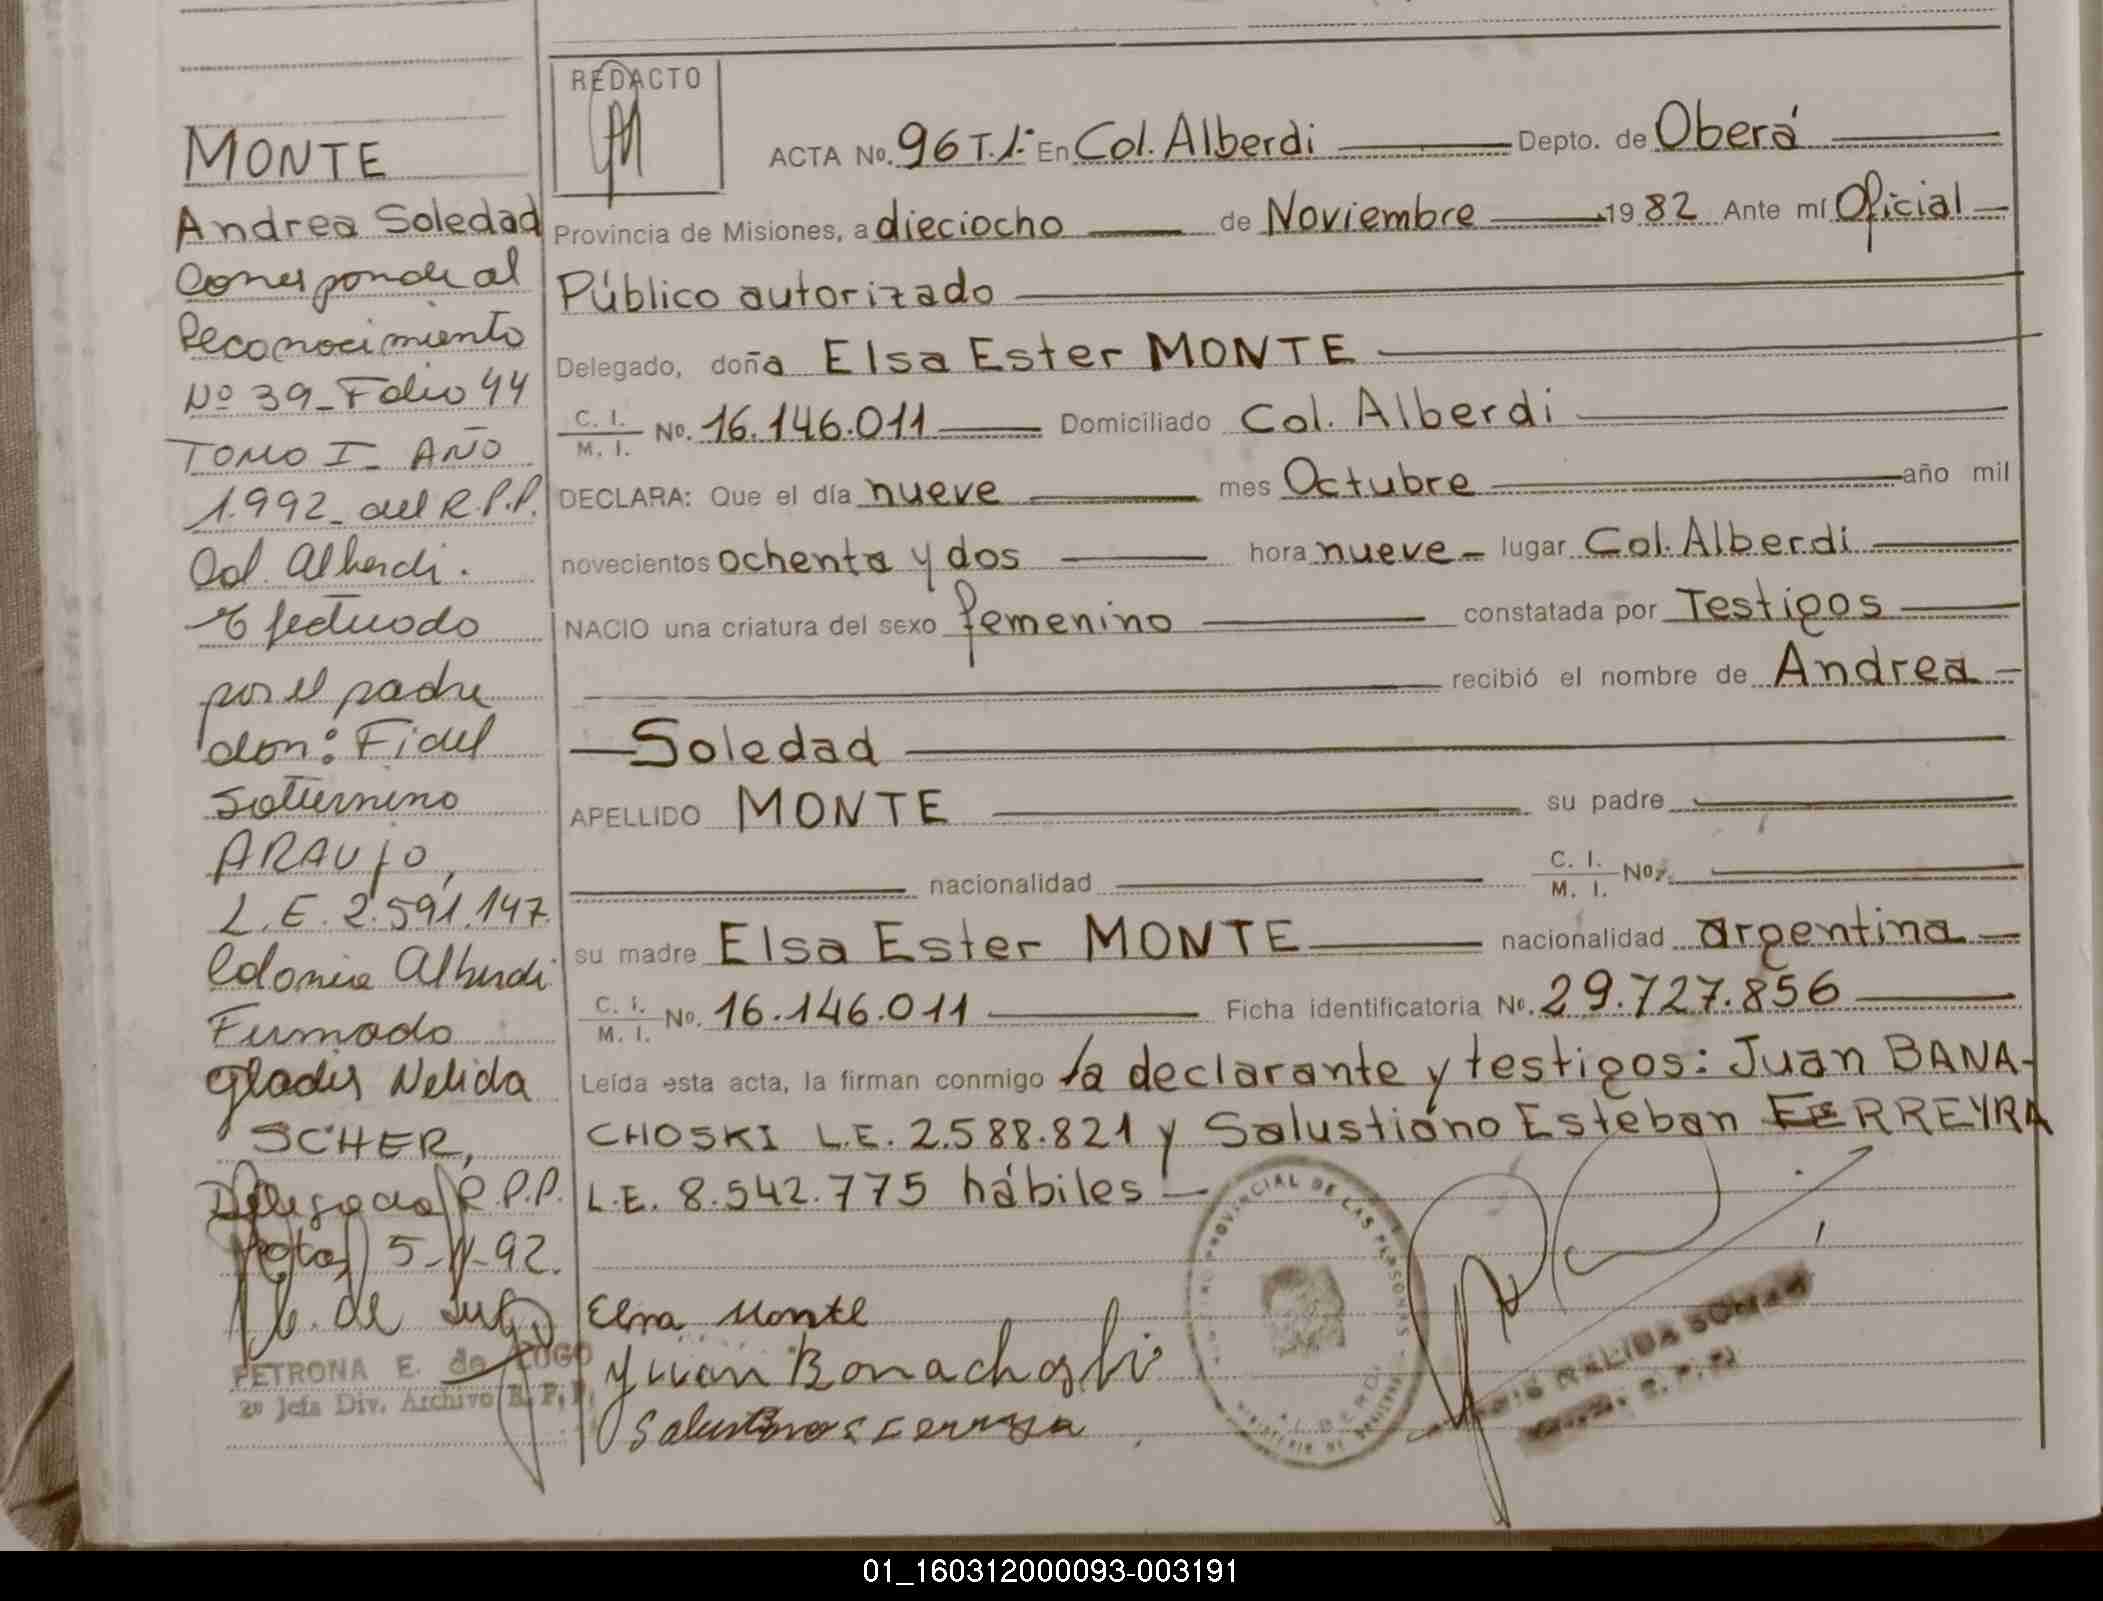 MONTE
Andrea Soledad
Corresponde al
Reconocimiento
Nº 39_Folio 44
TOMO I_ AÑO
1.992_ del R.P.P.
Col. Alberdi.
Efectuado
por el padre
don: Fidel
Saturnino
ARAUJO,
L.E. 2.591.147.
Colonia Alberdi
Fumado
Gladis Nelida
SCHER,
Delegada R.P.P.
Nota 5-11-92.
PETRONA E. de LUGO
2º Jefa Div. Archivo R. P. P.
REDACTO
ACTA No. 96 T.1: En Col. Alberdi Depto. de Oberá
Provincia de Misiones, a dieciocho de Noviembre 1982 Ante mí Oficial
Público autorizado
Delegado, doña Elsa Ester MONTE
C. I. / M. I. No. 16.146.011 Domiciliado Col. Alberdi
DECLARA: Que el día nueve mes Octubre año mil
novecientos ochenta y dos hora nueve lugar Col. Alberdi
NACIO una criatura del sexo femenino constatada por Testigos
recibió el nombre de Andrea
Soledad
APELLIDO MONTE su padre
nacionalidad C. I. / M. I. No.
su madre Elsa Ester MONTE nacionalidad argentina
C. I. / M. I. No. 16.146.011 Ficha identificatoria No. 29.727.856
Leída esta acta, la firman conmigo la declarante y testigos: Juan BANA-
CHOSKI L.E. 2.588.821 y Salustiano Esteban FERREYRA
L.E. 8.542.775 hábiles
Elsa Monte
Juan Bonachoski
PROVINCIAL DE LAS PERSONAS
ALBERDI
NELIDA
R. P. P.
01_160312000093-003191